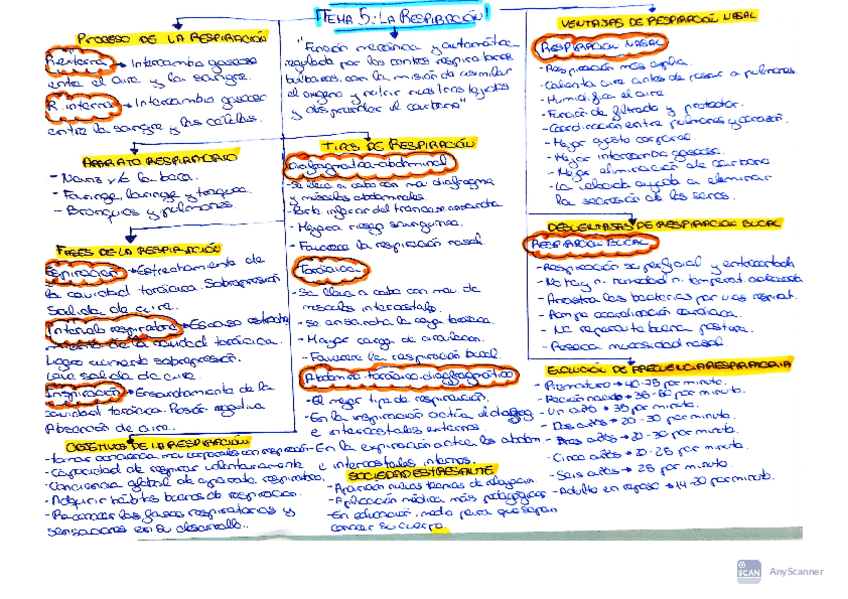 TEMA 5: LA RESPIRACIÓN
PROCESO DE LA RESPIRACIÓN
R. externa → Intercambio gaseoso
entre el aire y la sangre.
R. interna → Intercambio gaseoso
entre la sangre y las células.
APARATO RESPIRATORIO
- Nariz y/o la boca.
- Faringe, laringe y traquea.
- Bronquios y pulmones.
FASES DE LA RESPIRACIÓN
Espiración → Estrechamiento de
la cavidad torácica. Sobrepresión
salida de aire.
Intervalo respiratorio → Escaso
de la cavidad torácica.
Ligero aumento sobrepresión.
salida de aire.
Inspiración → Ensanchamiento de la
cavidad torácica. Presión negativa
Absorción de aire.
OBJETIVOS DE LA RESPIRACIÓN
- Tomar conciencia respiración
- Capacidad de respirar voluntariamente
- Conciencia global de aparato respiratorio.
- Adquirir hábitos buenos de respiración.
- Reconocer las fases respiratorias y
sensaciones en su desarrollo.
"Función mecánica y automática
regulada por los centros respiratorios
bulbares, con la misión de asimilar
el oxígeno y nutrir nuestros tejidos
y desprender el carbono"
TIPOS DE RESPIRACIÓN
Diafragmática-abdominal
- Se lleva a cabo con mov. diafragma
y músculos abdominales.
- Parte inferior del tronco se ensancha
- Mejora riego sanguíneo.
- Favorece la respiración nasal
Torácica
- Se lleva a cabo con mov. de
músculos intercostales.
- Se ensancha la caja torácica.
- Mayor carga de circulación.
- Favorece la respiración bucal.
Abdomino-torácico-diafragmático
- El mejor tipo de respiración.
- En la inspiración actúa el diafrag
e intercostales externos
- En la expiración actúa los abdom
e intercostales internos.
SOCIEDAD ESTRESANTE
- Aparición técnicas de relajación.
- Aplicación médica, más pedagógica
- En educación, modo para que sepan
conocer su cuerpo.
VENTAJAS DE RESPIRACIÓN NASAL
RESPIRACIÓN NASAL
- Respiración más amplia.
- Calienta aire antes de pasar a pulmones.
- Humidifica el aire
- Función de filtrado y protector.
- Coordinación entre pulmones y corazón.
- Mejor gasto corporal.
- Mejor intercambio gaseoso.
- Mejor eliminación de carbono
- La ayuda a eliminar
la secreción de los senos.
DESVENTAJAS DE RESPIRACIÓN BUCAL
RESPIRACIÓN BUCAL
- Respiración superficial y entrecortada
- No hay n. humedad n. temperat. adecuada
- Arrastra las bacterias por vías respirat.
- Rompe coordinación cardiaca.
- No reporta buena postura.
- Reseca mucosidad nasal
EVOLUCIÓN DE FRECUENCIA RESPIRATORIA
- Prematuro → 40-75 por minuto.
- Recién nacido → 36-60 por minuto.
- Un año → 35 por minuto.
- Dos años → 20-30 por minuto.
- Tres años → 20-30 por minuto.
- Cinco años → 20-25 por minuto.
- Seis años → 25 por minuto.
- Adulto en reposo → 14-20 por minuto.
SCAN
AnyScanner